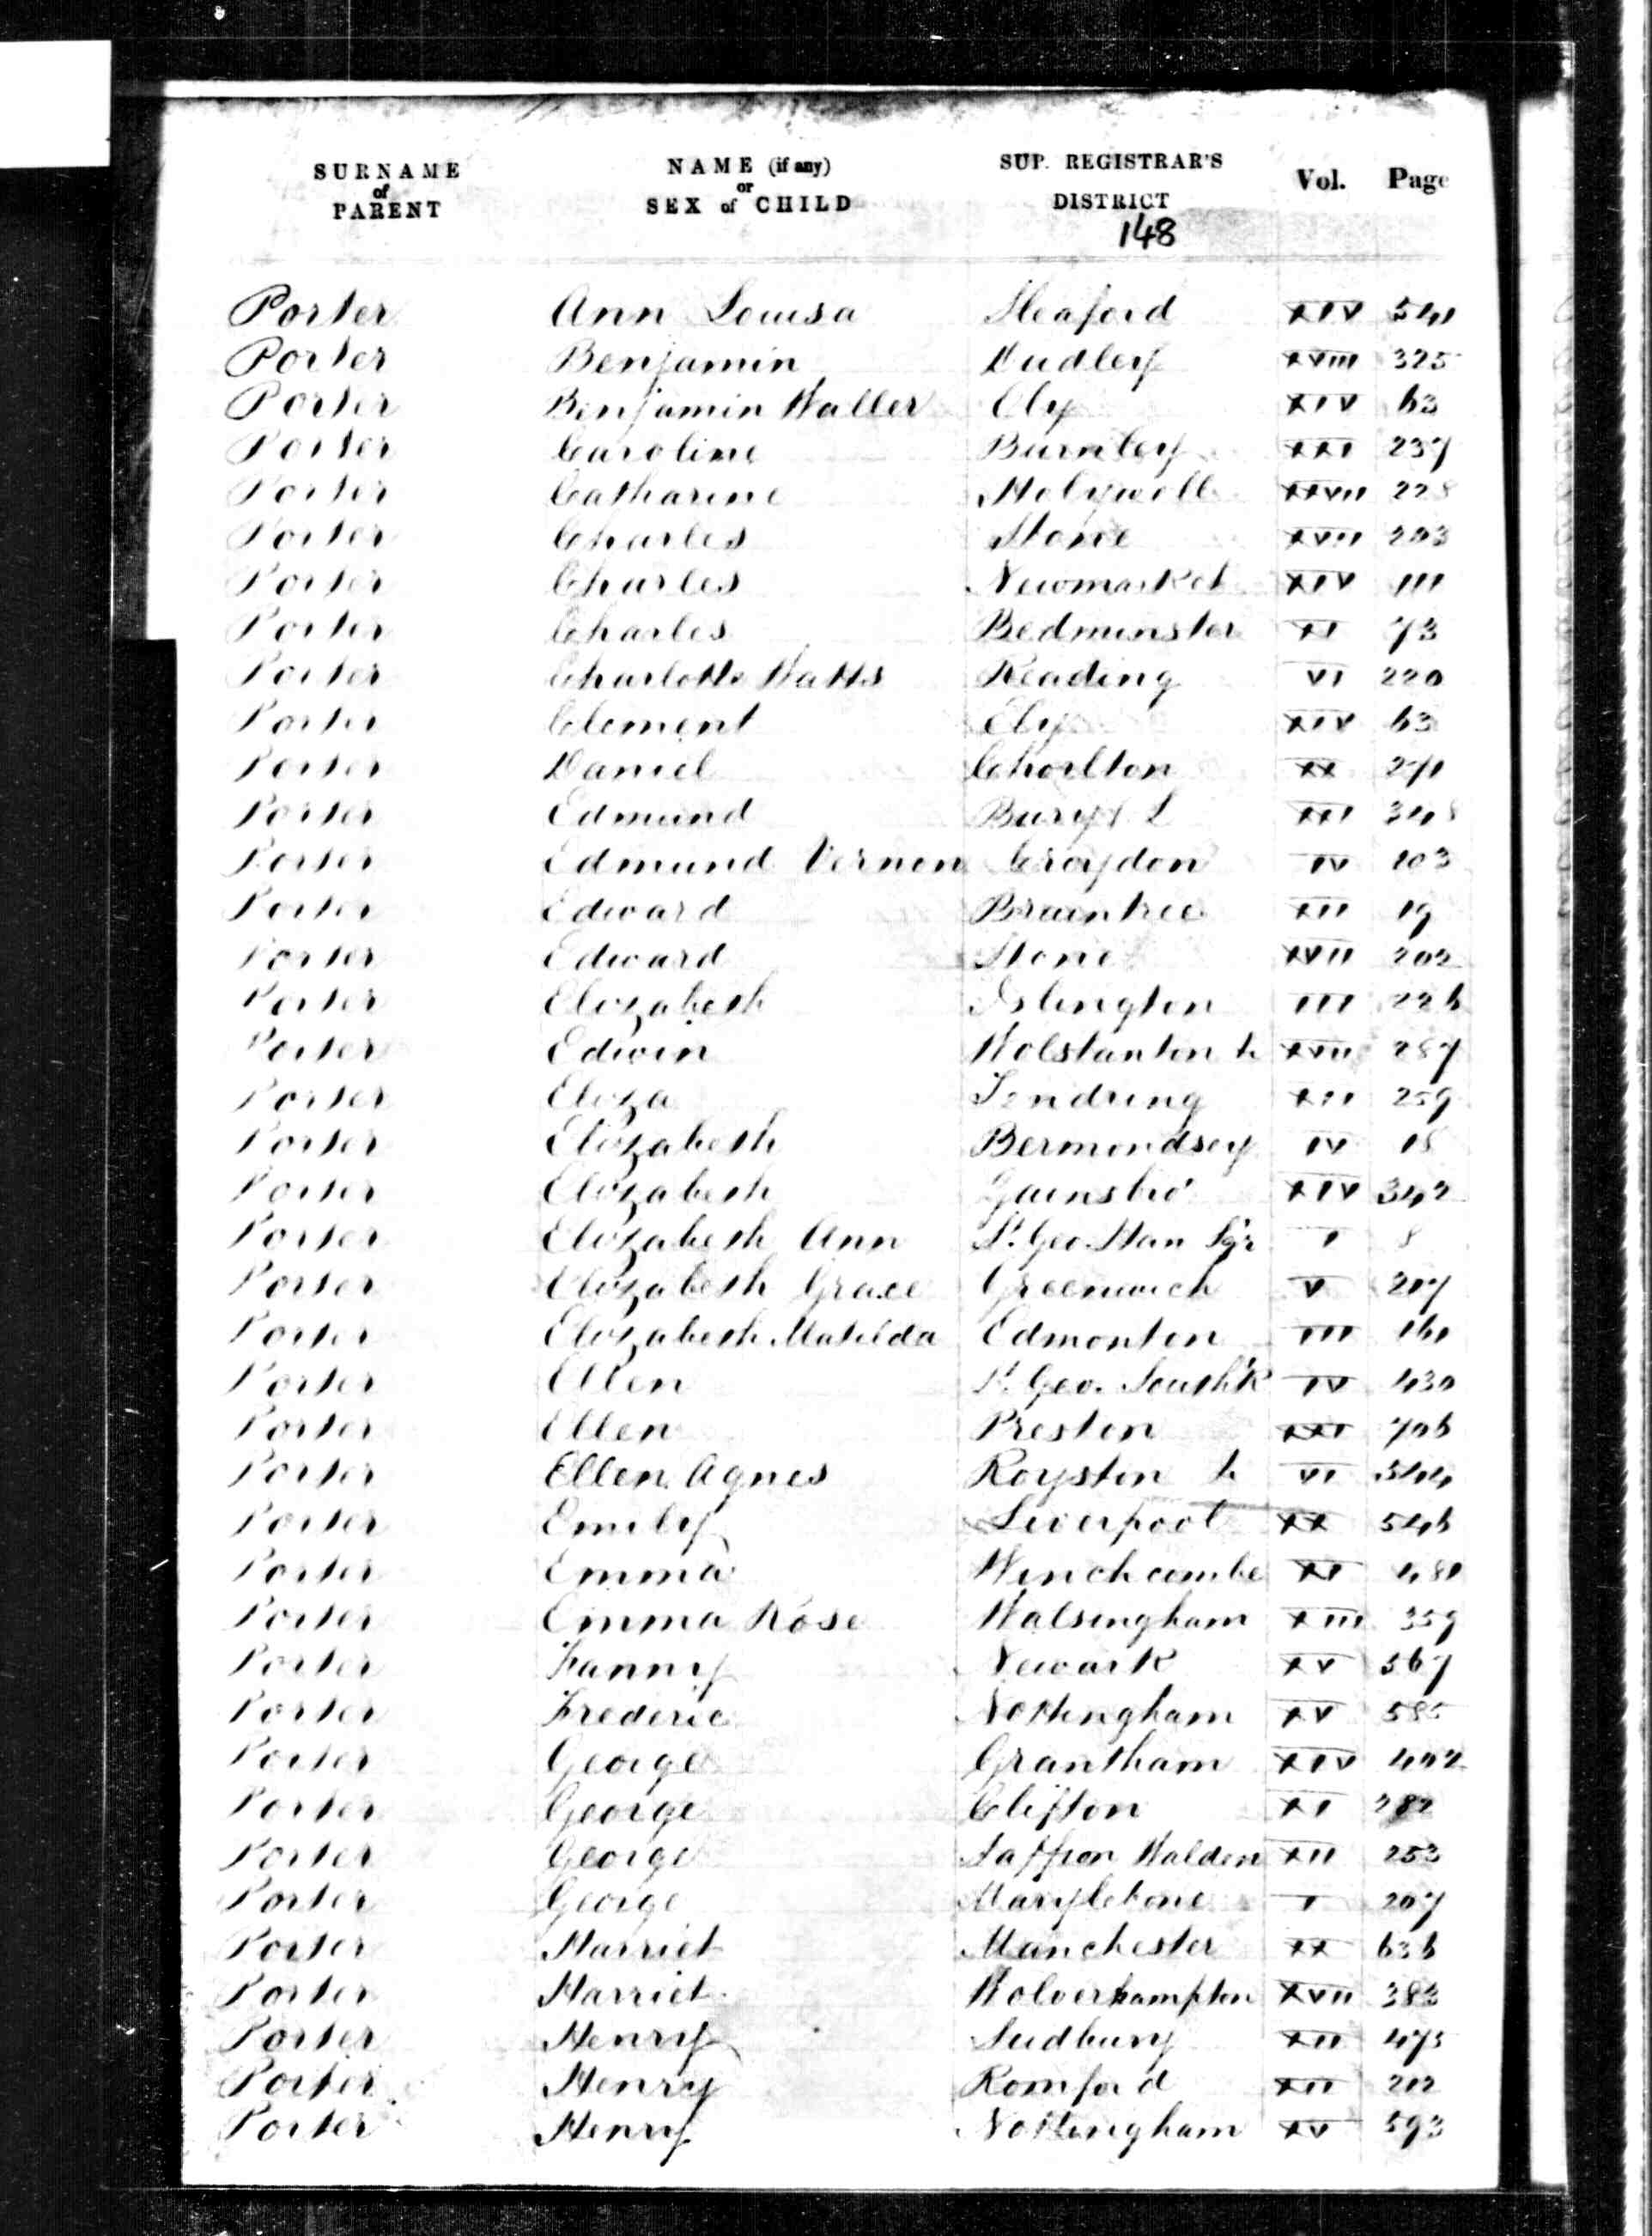 SURNAME of PARENT NAME (if any) or SEX of CHILD SUP. REGISTRAR'S DISTRICT Vol. Page
148
Porter Ann Louisa Sleaford XIV 541
Porter Benjamin Dudley XVIII 325
Porter Benjamin Waller Ely XIV 63
Porter Caroline Burnley XXI 237
Porter Catharine Holywell XXVII 228
Porter Charles Stone XVII 203
Porter Charles Newmarket XIV 111
Porter Charles Bedminster XI 73
Porter Charlotte Watts Reading VI 220
Porter Clement Ely XIV 63
Porter Daniel Chorlton XX 271
Porter Edmund Bury L XXI 348
Porter Edmund Vernon Croydon IV 103
Porter Edward Braintree XII 19
Porter Edward Stone XVII 202
Porter Elizabeth Islington III 226
Porter Edwin Wolstanton &c XVII 287
Porter Eliza Tendring XII 259
Porter Elizabeth Bermondsey IV 18
Porter Elizabeth Gainsbro' XIV 342
Porter Elizabeth Ann St. Geo. Han Sqr I 8
Porter Elizabeth Grace Greenwich V 217
Porter Elizabeth Matilda Edmonton III 161
Porter Ellen St. Geo. South'k IV 430
Porter Ellen Preston XXI 706
Porter Ellen Agnes Royston &c VI 544
Porter Emily Liverpool XX 546
Porter Emma Winchcombe XI 481
Porter Emma Rose Walsingham XIII 359
Porter Fanny Newark XV 567
Porter Frederic Nottingham XV 585
Porter George Grantham XIV 402
Porter George Clifton XI 282
Porter George Saffron Walden XII 253
Porter George Marylebone I 207
Porter Harriet Manchester XX 636
Porter Harriet Wolverhampton XVII 383
Porter Henry Sudbury XII 475
Porter Henry Romford XII 212
Porter Henry Nottingham XV 593